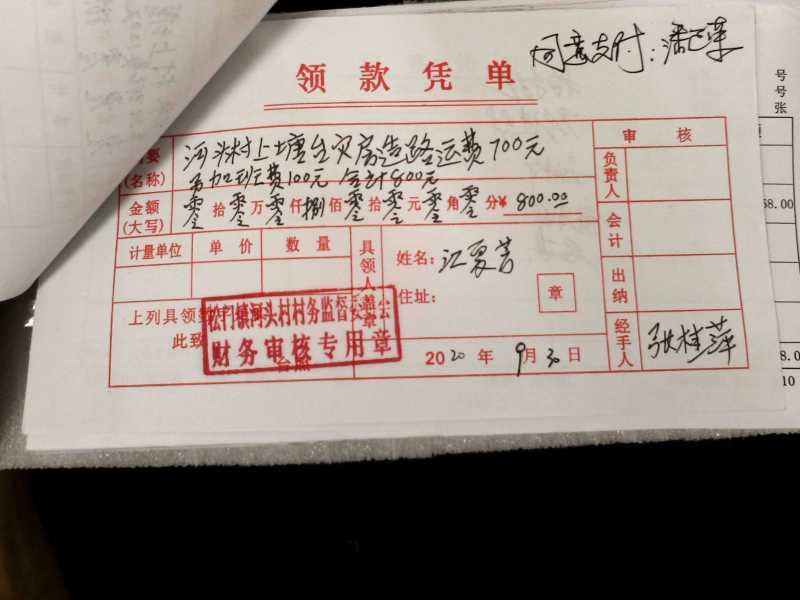 同意支付：潘已菜
领款凭单
要
(名称)
河头村上塘生灾房造路运费700元
另加班费100元 合计800元
金额
(大写)
零拾零万零仟捌佰零拾零元零角零分¥ 800.00
计量单位 单价 数量
上列具领数
此致
台照
具领人盖章
姓名：江夏芳
住址：
章
2020年9月30日
审核
负责人
会计
出纳
经手人
张桂萍
松门镇河头村村务监督委员会
财务审核专用章
号
号
张
68.00
8.00
10